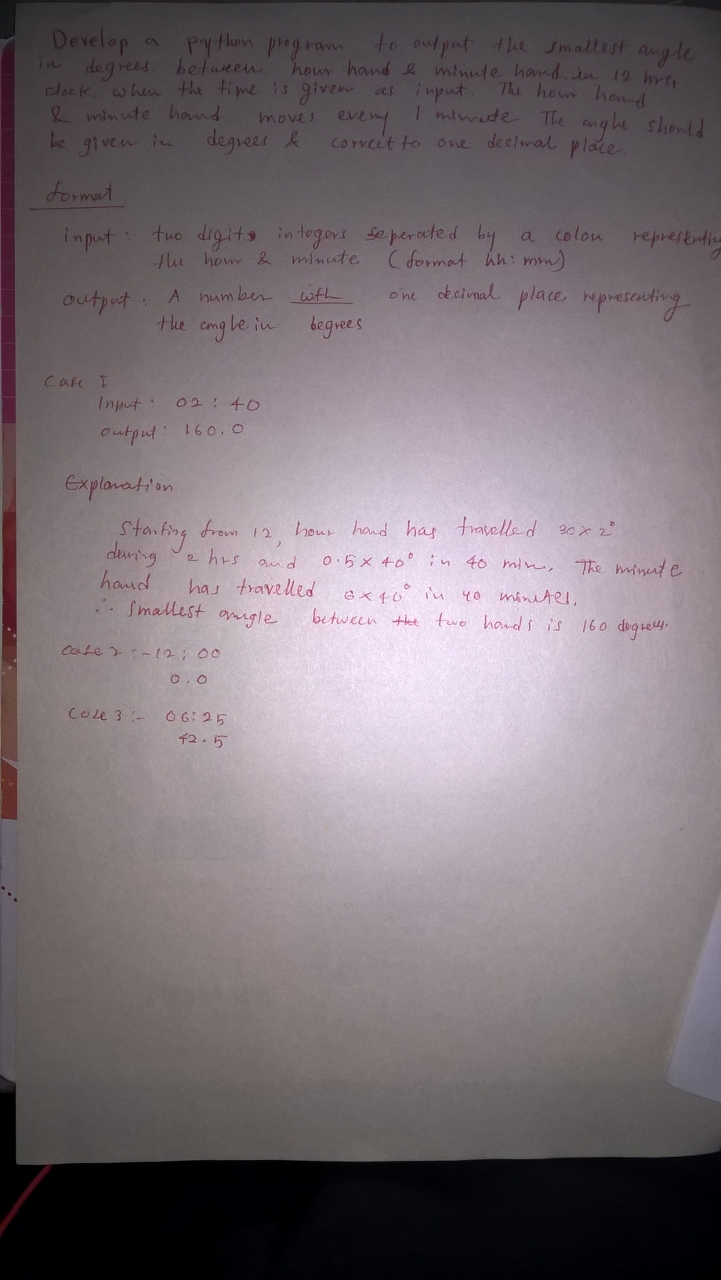 Develop a python program to output the smallest angle
in degrees between hour hand & minute hand in 12 hrs,
clock when the time is given as input. The hour hand
& minute hand moves every 1 minute The anghe should
be given in degrees & correct to one decimal place.
format
input : two digits integers seperated by a colon representing
the hour & minute (format hh:mm)
output : A number with one decimal place representing
the angle in degrees
Case I
Input : 02 : 40
output : 160.0
Explanation
Starting from 12, hour hand has travelled 30x2°
during 2 hrs and 0.5x40° in 40 min. The minute
hand has travelled 6x40° in 40 minutes.
∴ Smallest angle between the two hands is 160 degrees.
Case 2 :- 12 : 00
0.0
Case 3 :- 06:25
42.5